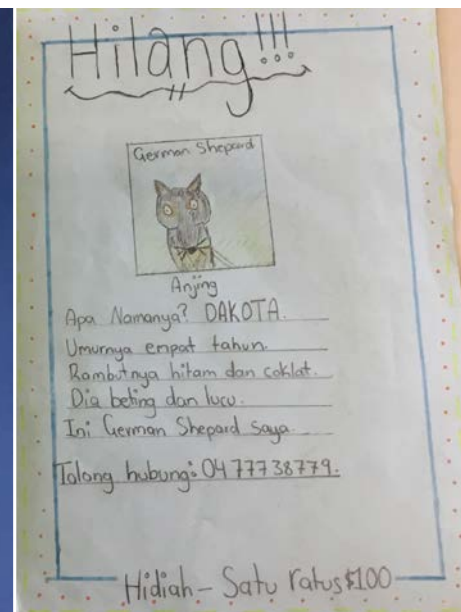 Hilang!!!
German Shepard
Anjing
Apa Namanya? DAKOTA.
Umurnya empat tahun.
Rambutnya hitam dan coklat.
Dia beting dan lucu.
Ini German Shepard saya.
Tolong hubung: 0477738779.
Hidiah - Satu ratus $100